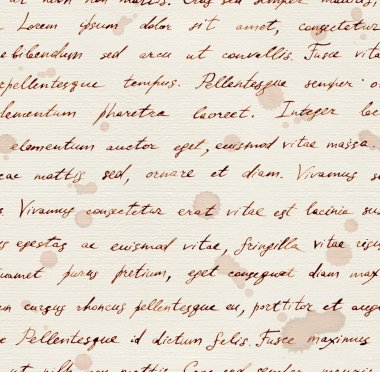 non mattis. Cras sed semper mauris,
Lorem ipsum dolor sit amet, consectetur
bibendum sed arcu ut convallis. Fusce vita
pellentesque tempus. Pellentesque semper
elementum pharetra laoreet. Integer lac
elementum auctor eget, euismod vitae massa.
ac mattis sed, ornare et diam. Vivamus su
s. Vivamus consectetur erat vitae est lacinia su
us egestas ac euismod vitae, fringilla vitae risus
amet purus pretium, eget consequat diam max
n cursus rhoncus pellentesque eu, porttitor et augu
re Pellentesque id dictum felis. Fusce maximus